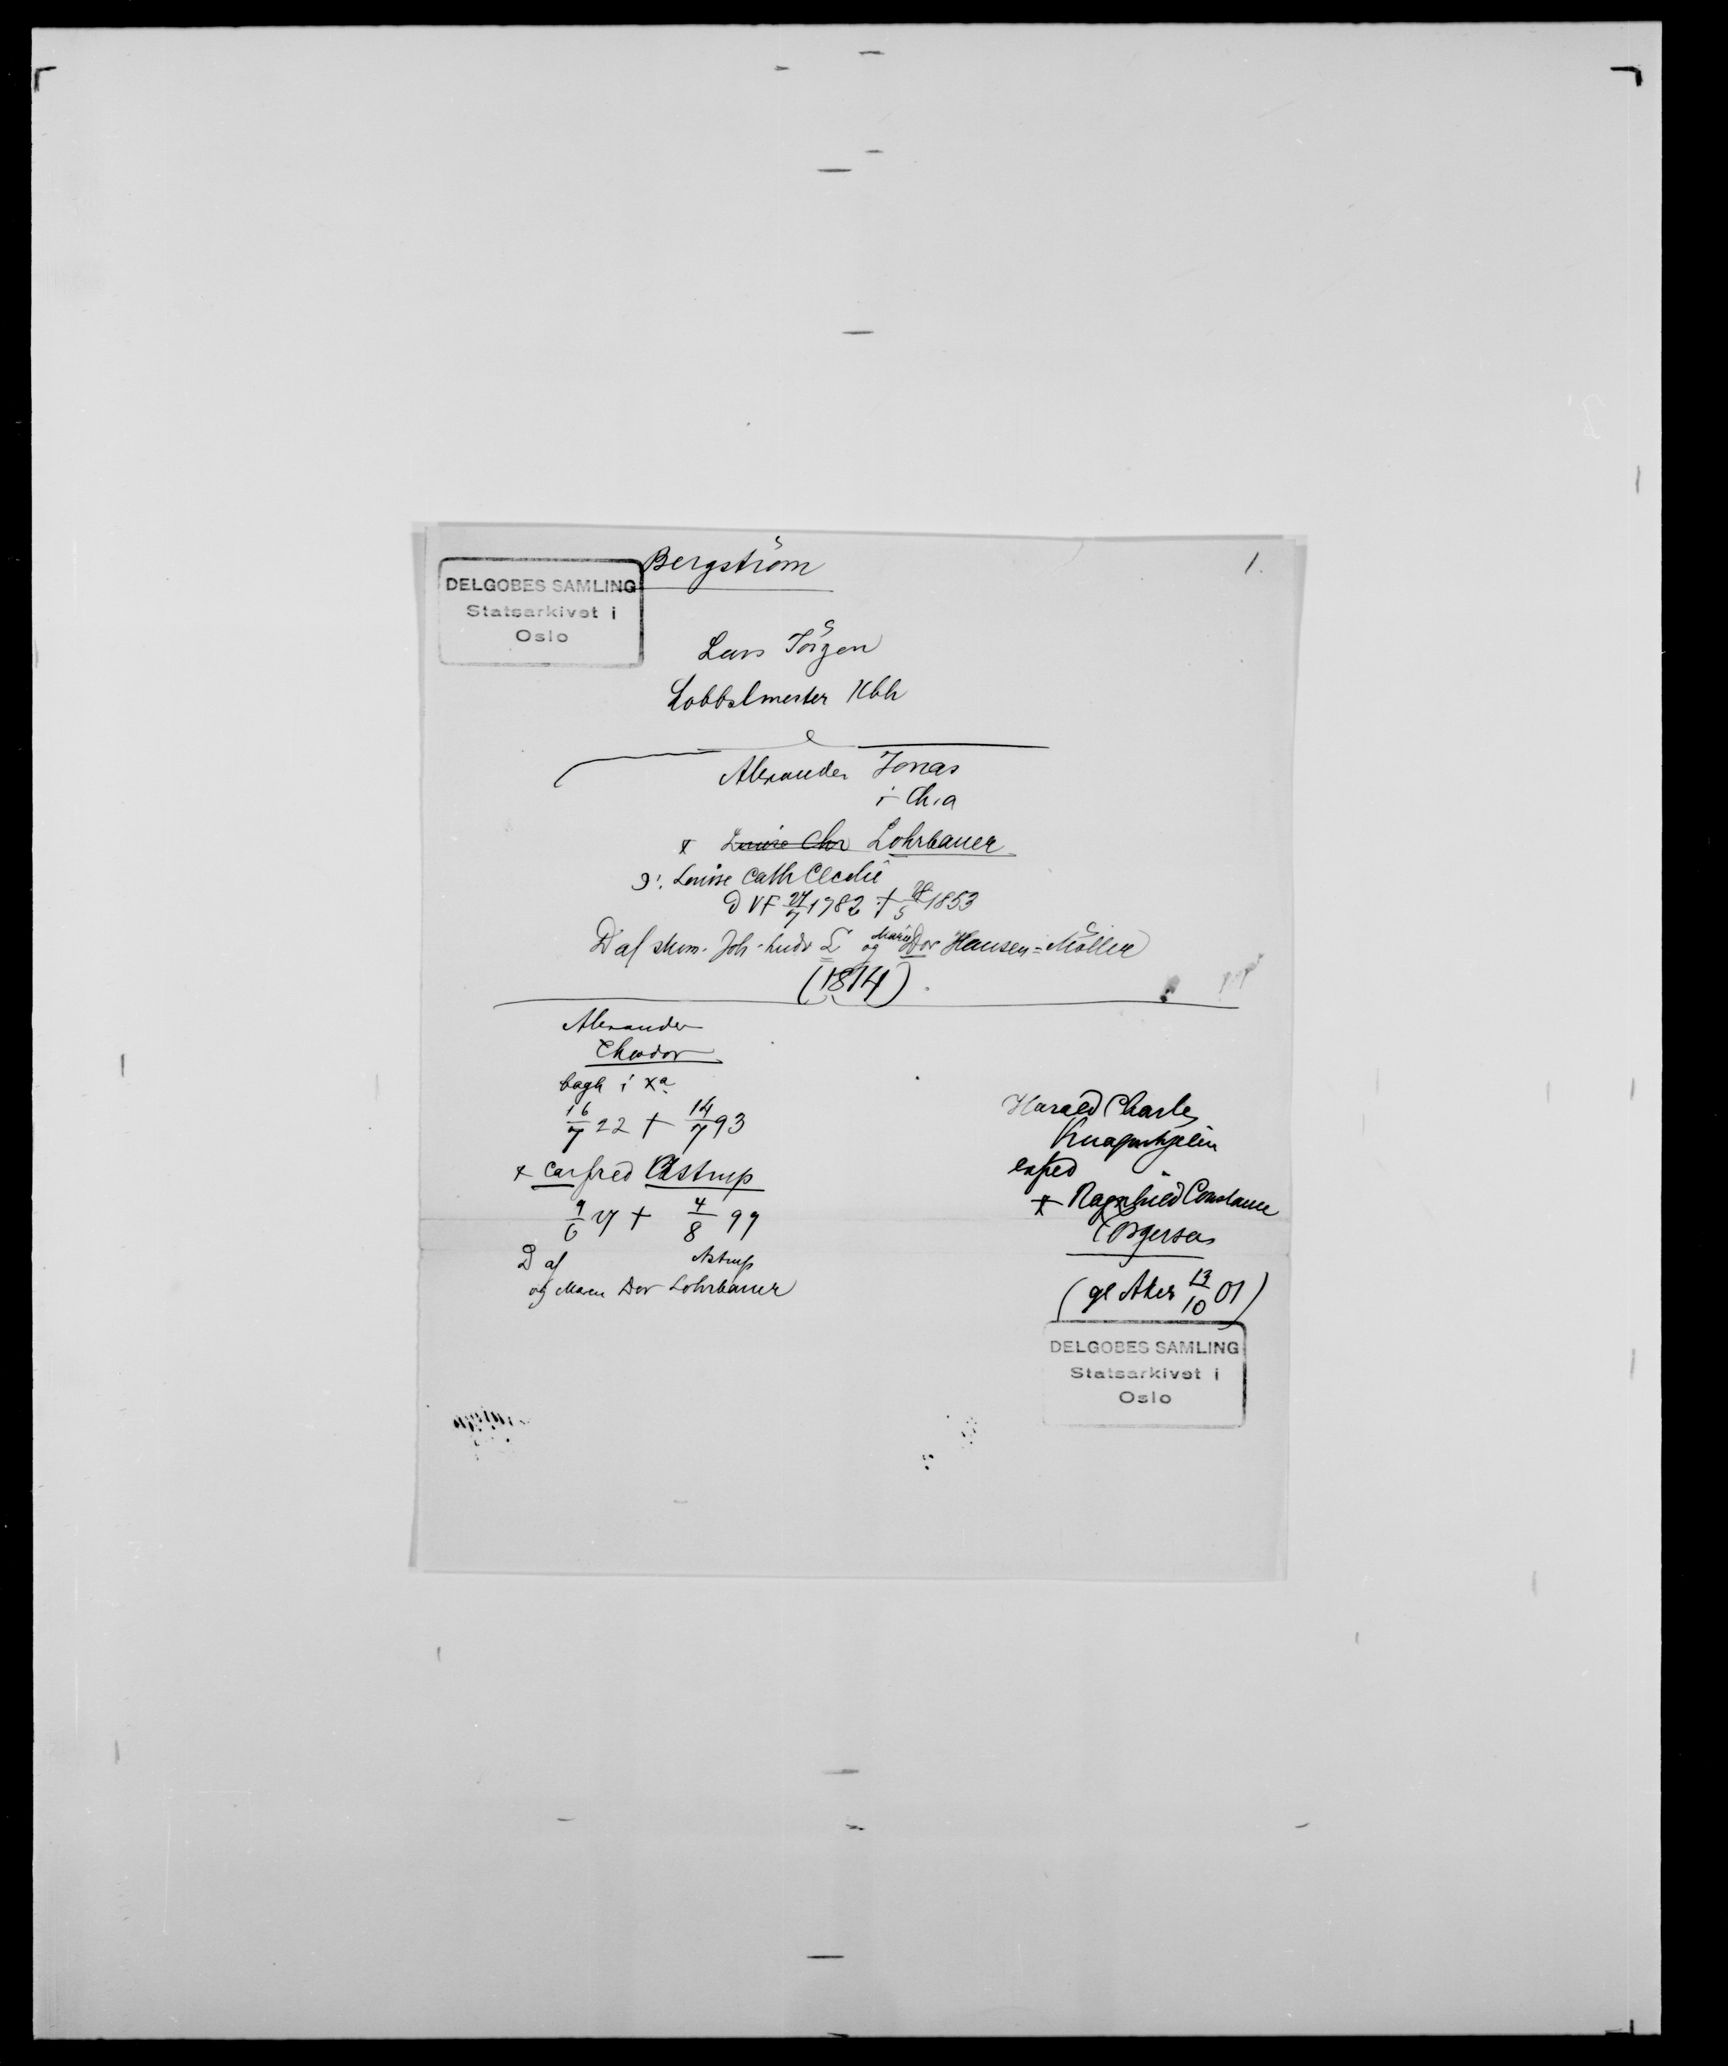 Bergström
1.
DELGOBES SAMLING
Statsarkivet i
Oslo
Lars Jörgen
Kbh
Alexander Jonas
i Ch.a
x Louise Chr Lohrbauer
ɔ: Louise Cath Cecilie
D VF 27/7 1782 † 28/5 1853
D af Joh. Ludv L og Marie Dor Hansen-Möller
(1814)
Alexander
Theodor
bagh i Xa
16/7 22 † 14/7 93
x Astrup
9/6 27 † 4/8 99
D af Astrup
og Maren Dor Lohrbauer
Harald Charles
Knagenhjelm
exped
x Ragnhild Constance
Torgersen
(gl Aker 13/10 01)
DELGOBES SAMLING
Statsarkivet i
Oslo